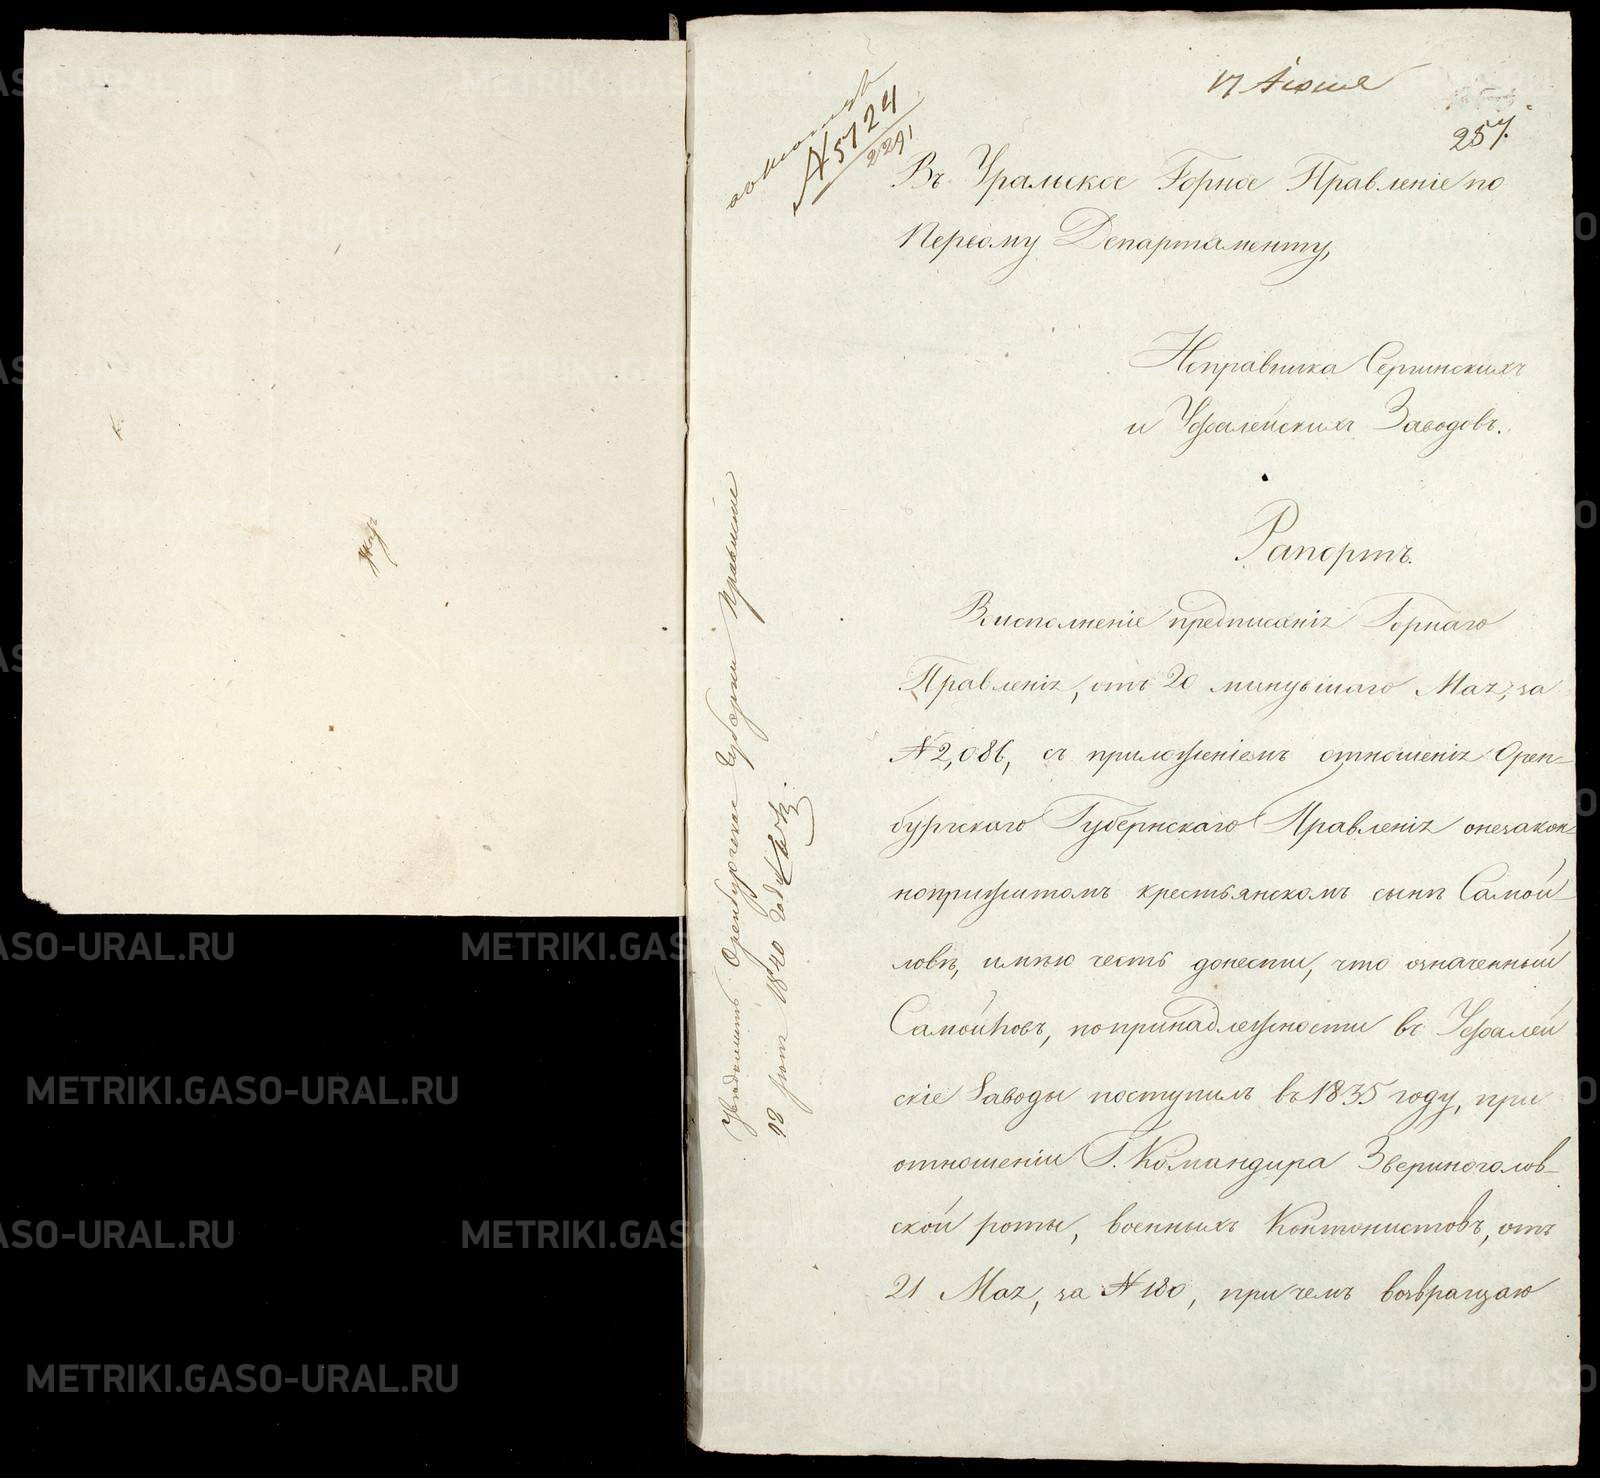 17 Июня
257.
№ 5724
2291
Въ Уральское Горное Правленіе по
Первому Департаменту,
Исправника Сергинскихъ
и Уфалейскихъ Заводовъ.
Рапортъ.
Воисполненіе предписанія Горнаго
Правленія, отъ 20 минувшаго Мая, за
№ 2,086, съ приложеніемъ отношенія Орен=
бургскаго Губернскаго Правленія онезакон=
ноприжитомъ крестьянскомъ сынѣ Самой=
ловѣ, имѣю честь донести, что означенный
Самойловъ, попринадлежности въ Уфалей
скіе Заводы поступилъ въ 1835 году, при
отношеніи Г. Командира Звериноголов=
ской роты, военныхъ Кантонистовъ, отъ
21 Мая, за № 180, причемъ возвращаю
Уведомить Оренбургское Губернс Правленіе
METRIKI.GASO-URAL.RU